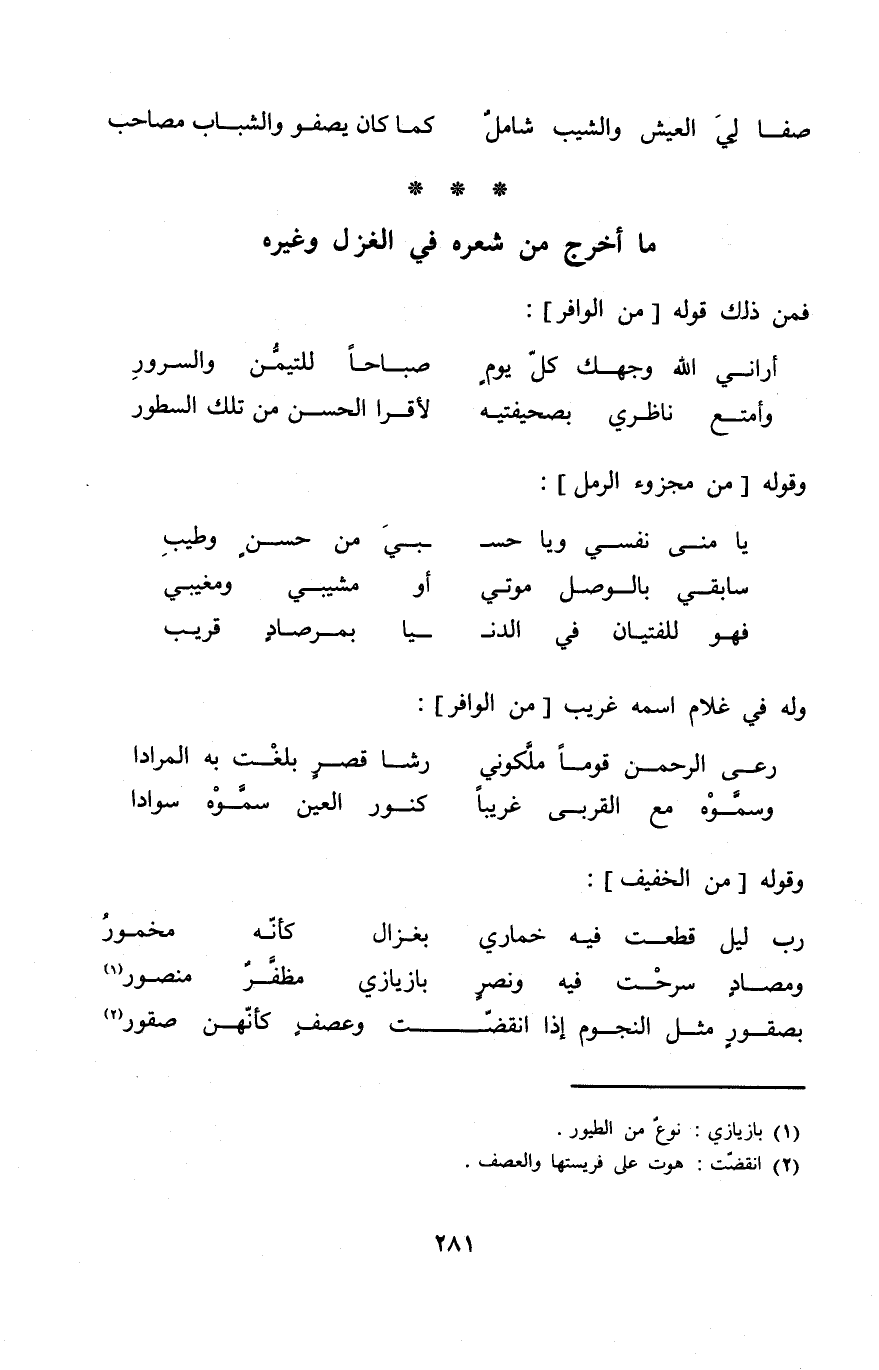 صفا ليَ العيش والشيب شاملٌ كما كان يصفو والشباب مصاحب
* * *
ما أخرج من شعره في الغزل وغيره
فمن ذلك قوله [ من الوافر ] :
أراني الله وجهك كلّ يومٍ صباحاً للتيمُّن والسرورِ
وأمتع ناظري بصحيفتيه لأقرا الحسن من تلك السطور
وقوله [ من مجزوء الرمل ] :
يا منى نفسي ويا حسـ ـبيَ من حسنٍ وطيبِ
سابقي بالوصل موتي أو مشيبي ومغيبي
فهو للفتيان في الدنـ ـيا بمرصادٍ قريب
وله في غلام اسمه غريب [ من الوافر ] :
رعى الرحمن قوماً ملَّكوني رشا قصرٍ بلغْت به المرادا
وسمَّوْه مع القربى غريباً كنور العين سمَّوْه سوادا
وقوله [ من الخفيف ] :
رب ليل قطعت فيه خماري بغزال كأنّه مخمورُ
ومصادٍ سرحْت فيه ونصرٍ بازيازي مظفَّرٌ منصور(١)
بصقورٍ مثل النجوم إذا انقضّت وعصفٍ كأنّهن صقور(٢)
(١) بازيازي : نوعٌ من الطيور .
(٢) انقضّت : هوت على فريستها والعصف .
٢٨١